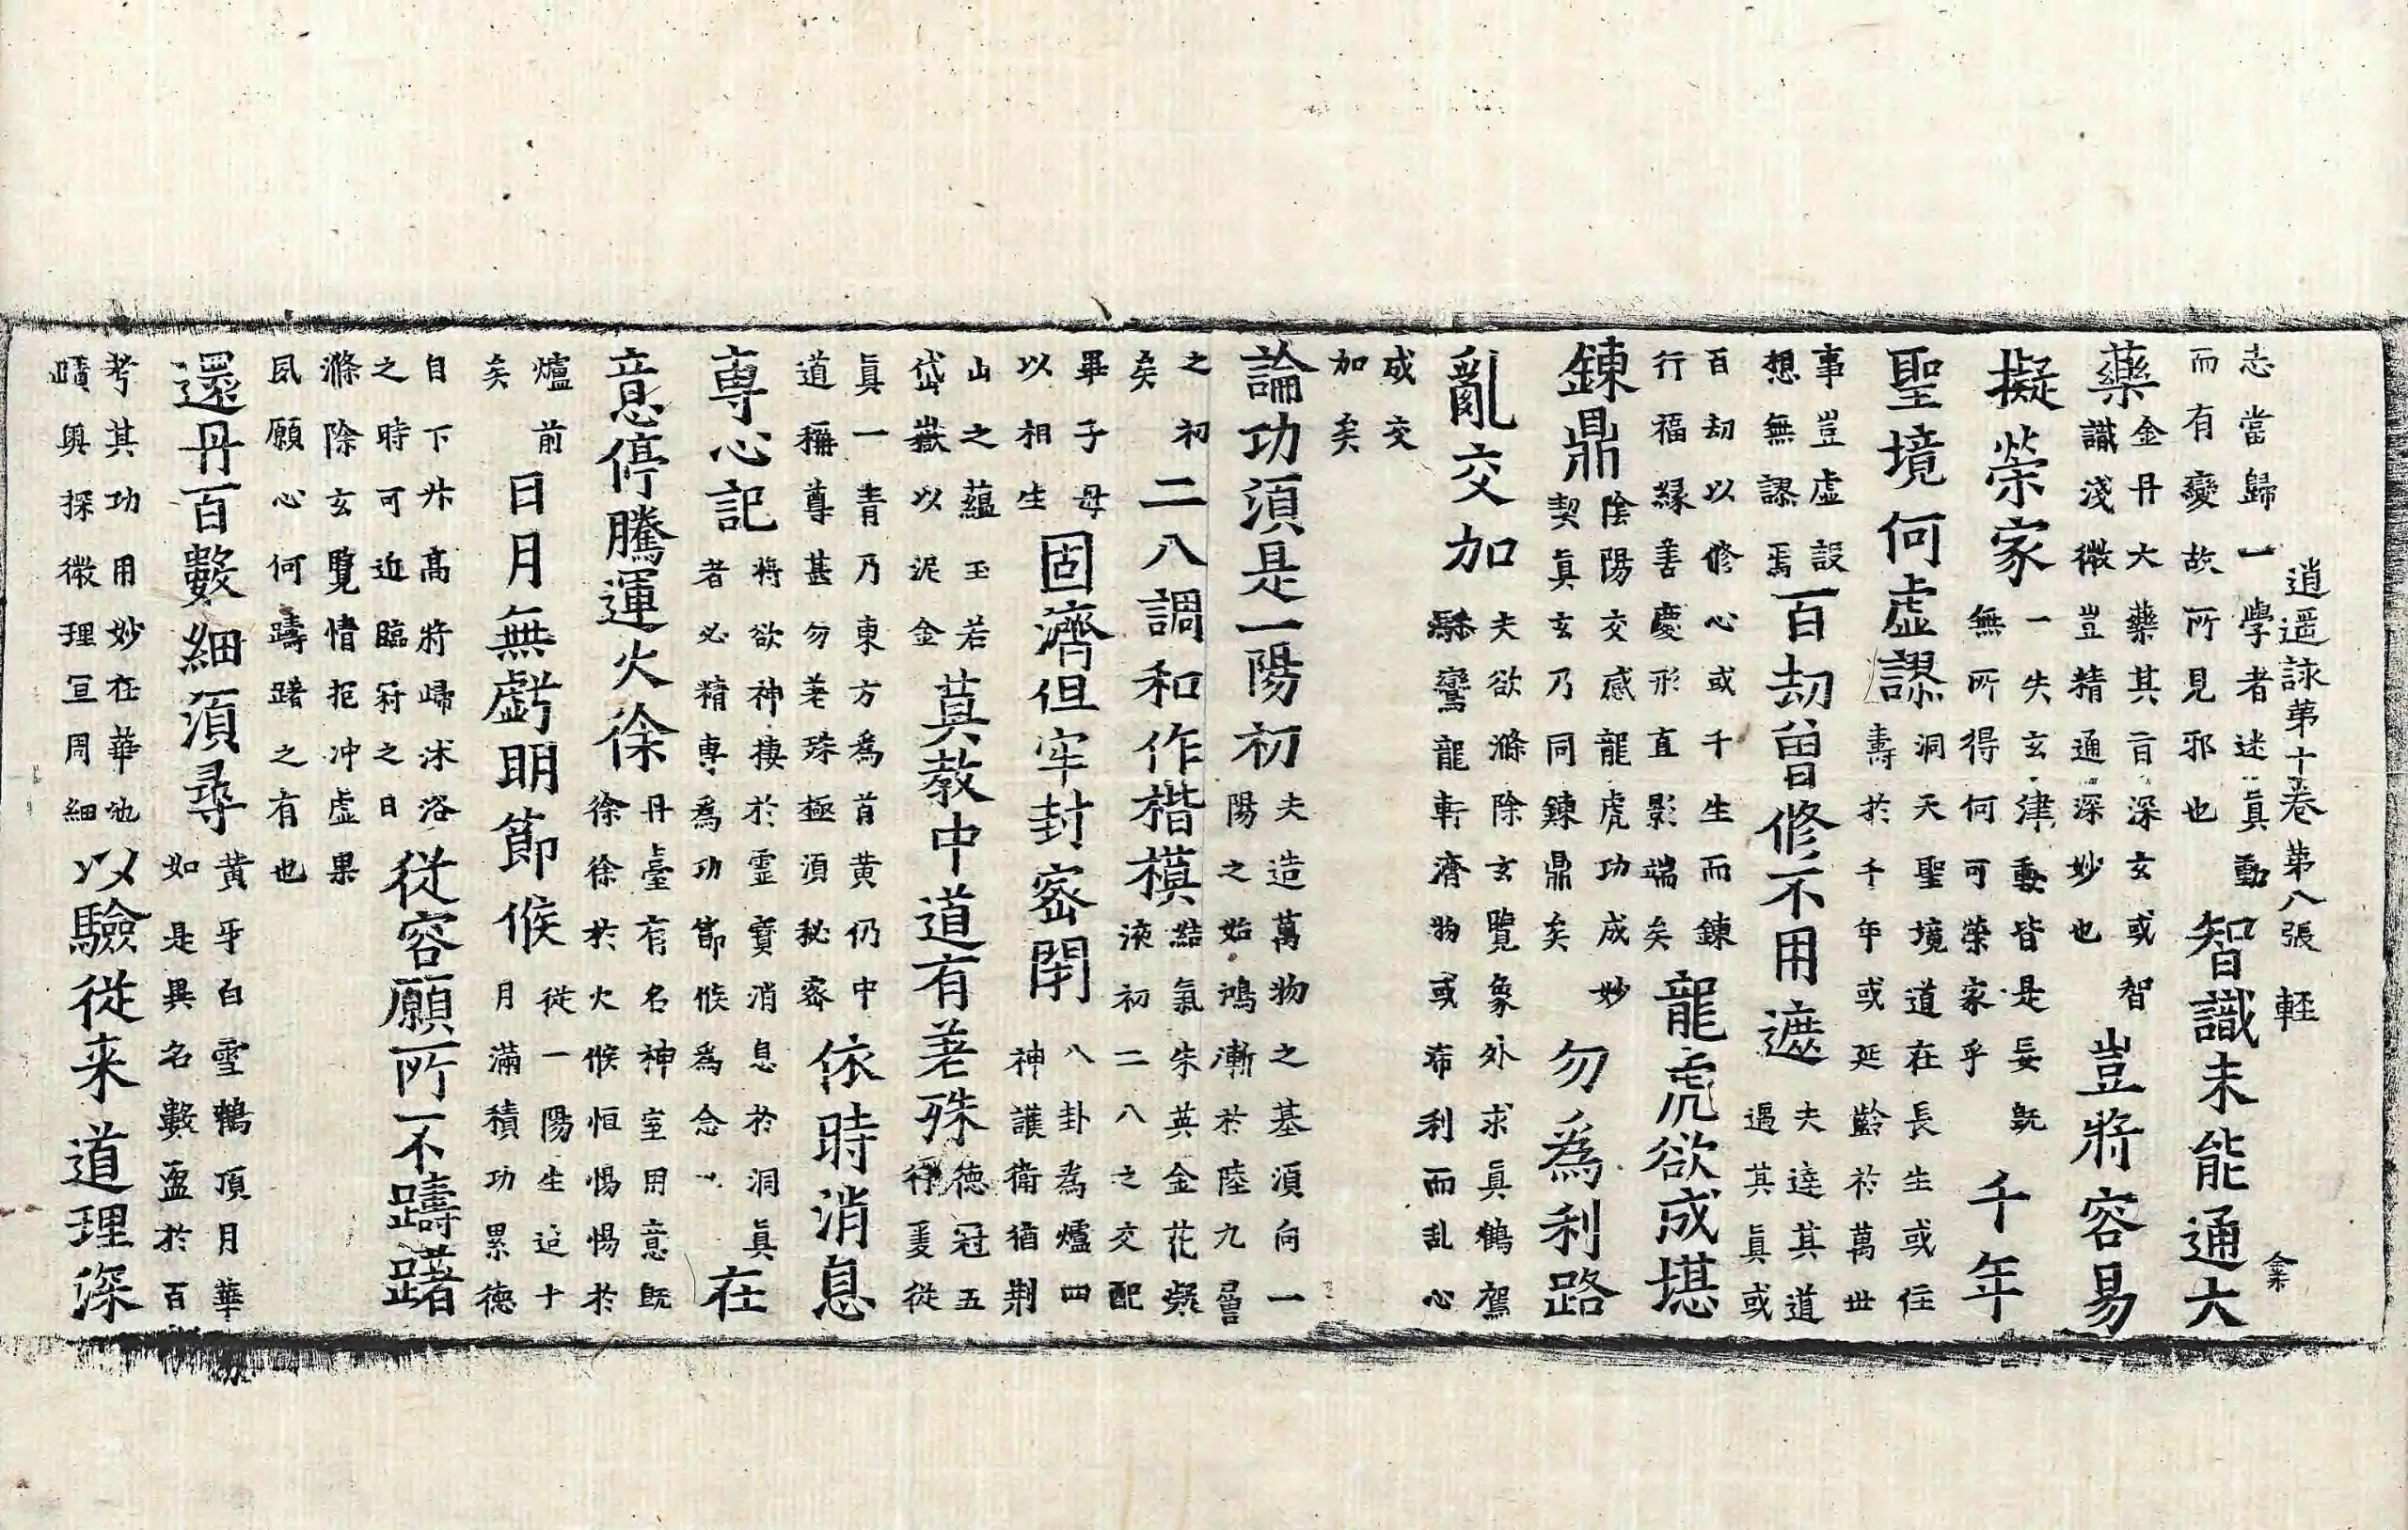 逍遥詠第十卷 第八張 輕
志當歸一學者迷真動
而有變故所見邪也
智識未能通大
藥
金丹大藥其旨深玄或智
識淺微豈精通深妙也
豈將容易
擬榮家
一失玄津動皆是妄既
無所得何可榮家乎
千年
聖境何虛謬
洞天聖境道在長生或住
壽於千年或延齡於萬世
事豈虛設
想無謬焉
百劫曾修不用遮
夫達其道
遇其真或
百劫以修心或千生而鍊
行福緣善慶形直影端矣
龍虎欲成堪
鍊鼎
陰陽交感龍虎功成妙
契真玄乃同鍊鼎矣
勿為利路
亂交加
夫欲滌除玄覽象外求真鶴駕
驂鸞龍軒濟物或希利而乱心
成交
加矣
論功須是一陽初
夫造萬物之基須向一
陽之始鴻漸於陸九層
之初
矣
二八調和作楷模
結氣朱英金花凝
液初二八之交配
畢子母
以相生
固濟但牢封密閇
八卦為爐四
神護衛猶荆
山之蘊玉若
岱嶽以泥金
莫教中道有差殊
德冠五
行爰從
真一青乃東方為首黃仍中
道稱尊甚勿差殊極須秘密
依時消息
専心記
將欲神棲於靈寶消息於洞真
者必精専為功節候為念
在
意停騰運火徐
丹臺有名神室用意既
徐徐於火候恒惕惕於
爐前
矣
日月無虧明節候
從一陽生迄十
月滿積功累德
自下升高將歸沐浴
之時可近臨符之日
從容願所不躊躇
滌除玄覽情抱冲虛果
夙願心何躊躇之有也
還丹百數細須尋
黃牙白雪鶴頂月華
如是異名數盈於百
考其功用妙在華池
賾與探微理宣周細
以驗從来道理深